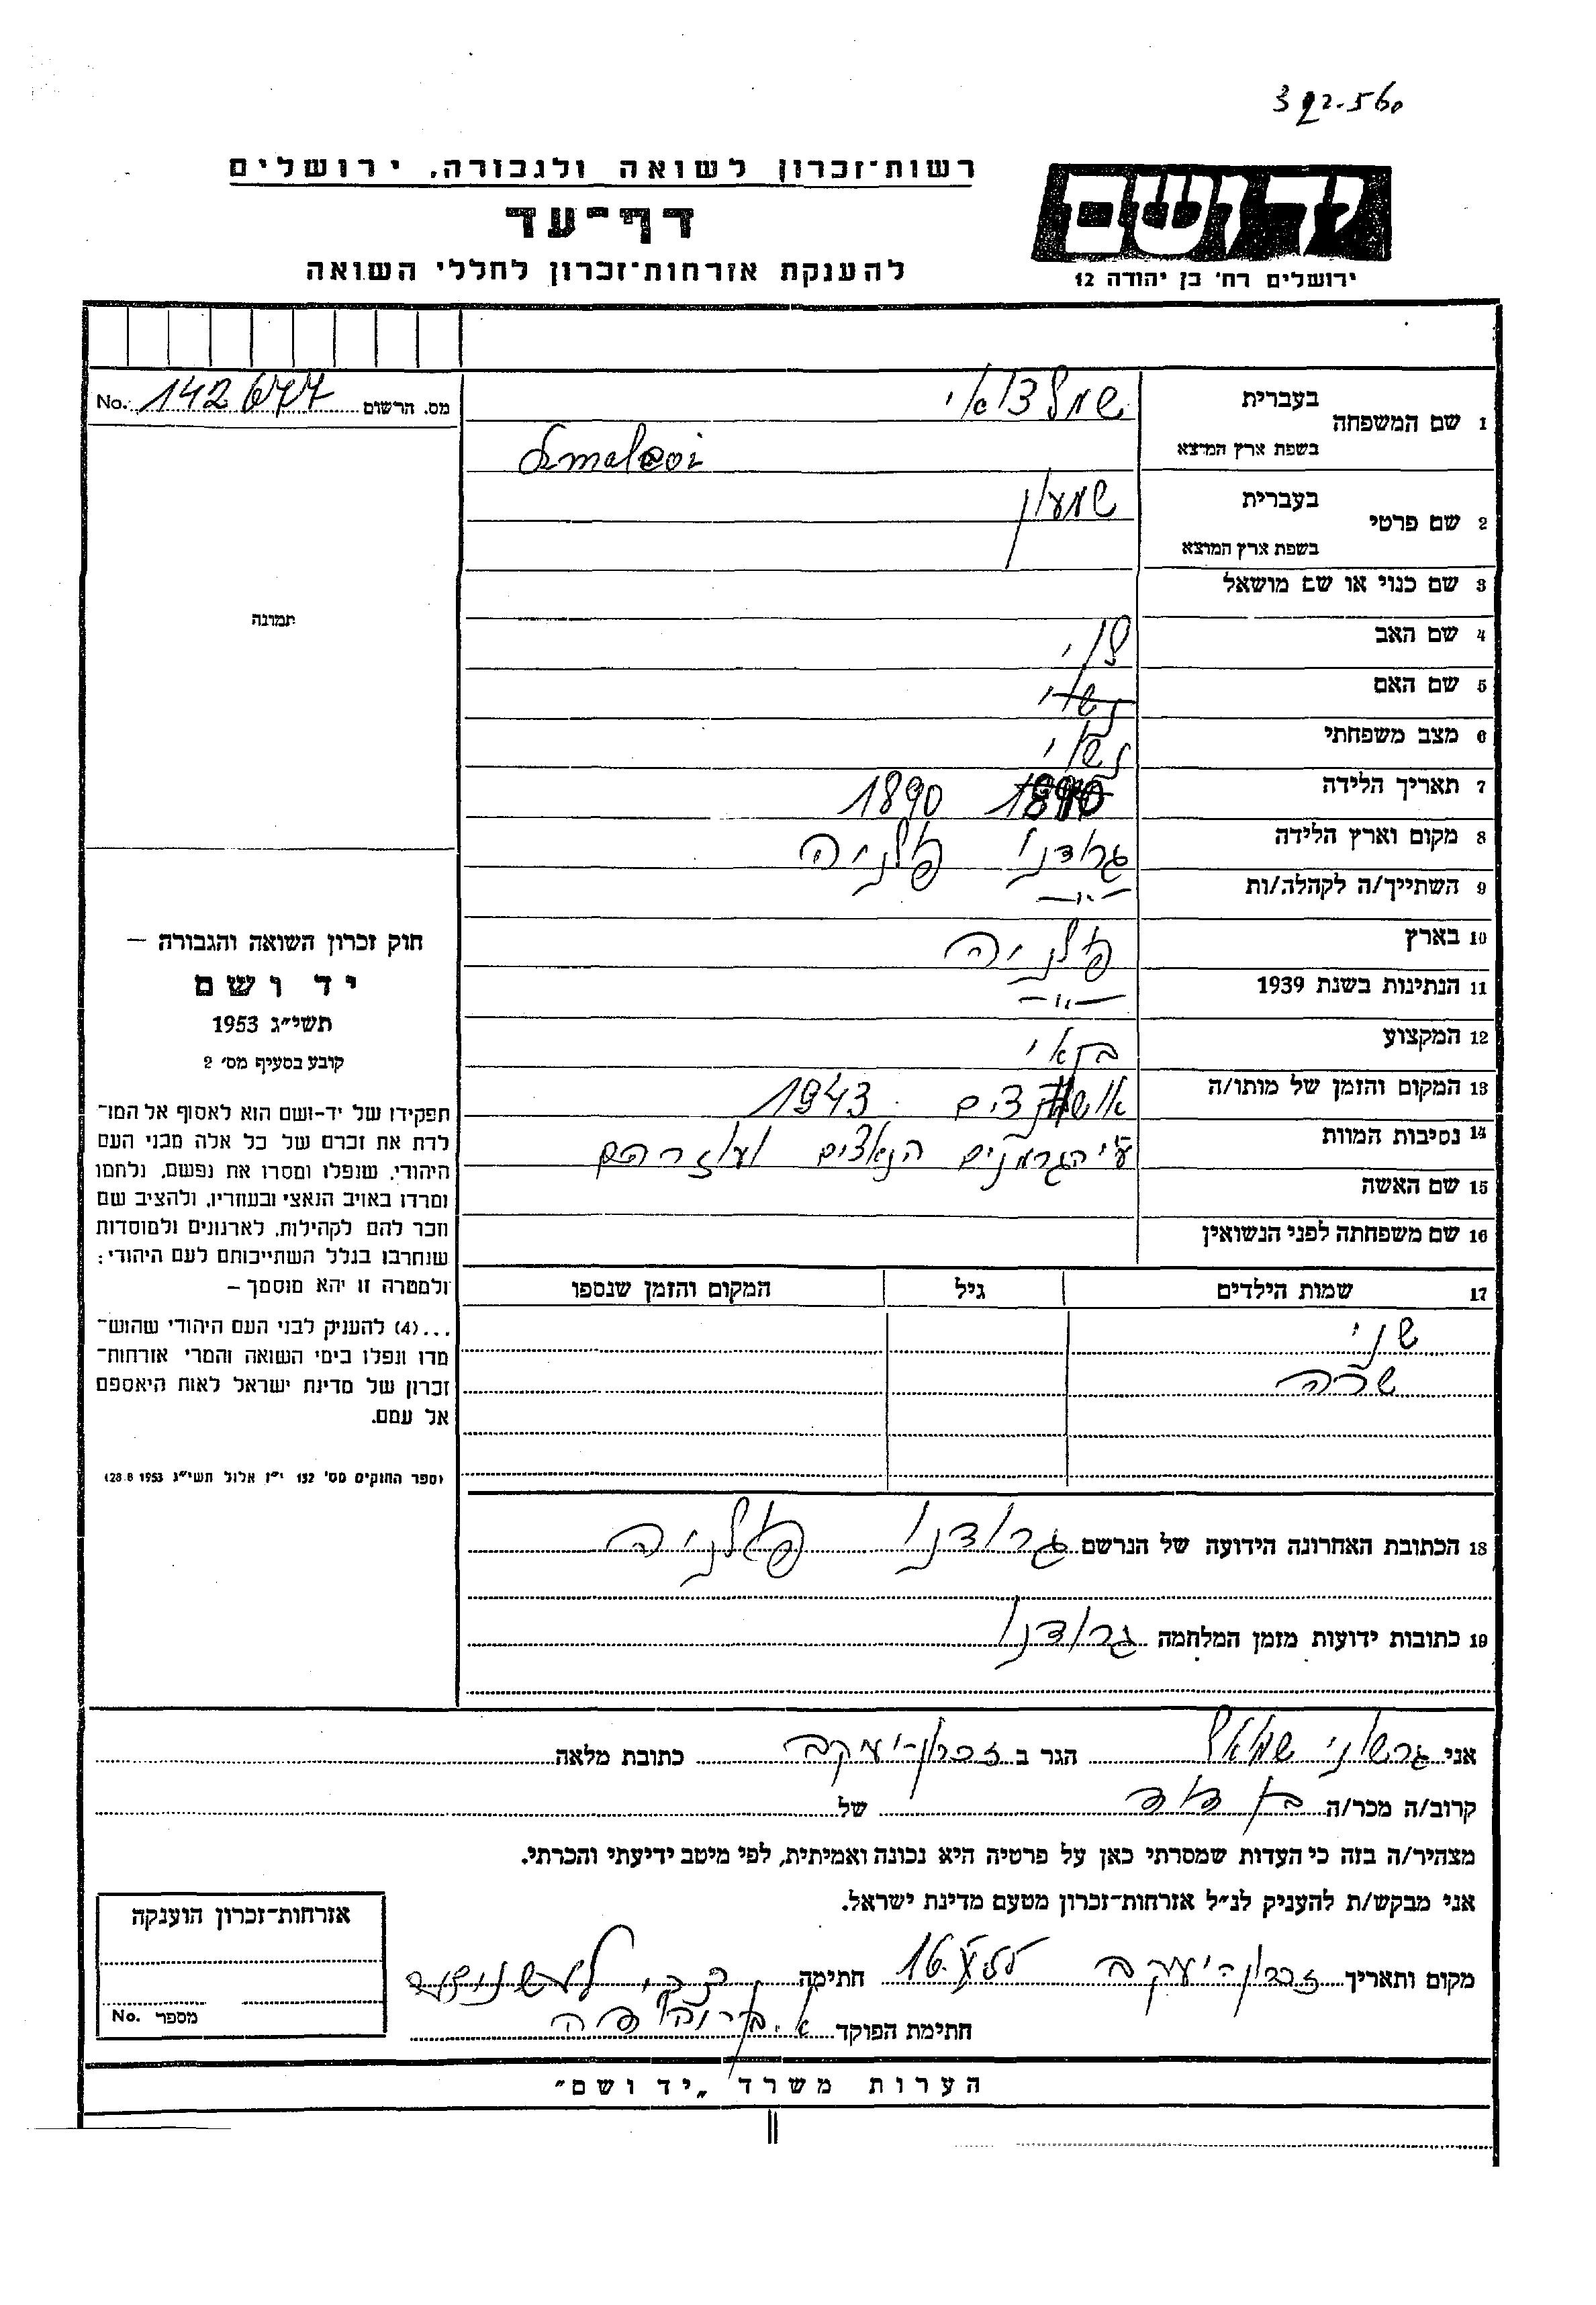 392-560
רשות-זכרון לשואה ולגבורה, ירושלים
יד ושם
דף-עד
להענקת אזרחות-זכרון לחללי השואה
ירושלים רח' בן יהודה 12
מס. הרשום 142677 No.
1 שם המשפחה
בעברית
בשפת ארץ המוצא
2 שם פרטי
בעברית שמעון
בשפת ארץ המוצא
3 שם כנוי או שם מושאל
4 שם האב
5 שם האם
6 מצב משפחתי נשוי
7 תאריך הלידה 1890
8 מקום וארץ הלידה גרודנו פולניה
9 השתייך/ה לקהלה/ות -"-
10 בארץ פולניה
11 הנתינות בשנת 1939 -"-
12 המקצוע בנאי
13 המקום והזמן של מותו/ה 1943
14 נסיבות המוות ע"י הגרמנים הנאצים ועוזריהם
15 שם האשה
16 שם משפחתה לפני הנשואין
17 שמות הילדים גיל המקום והזמן שנספו
שני
שרה
18 הכתובת האחרונה הידועה של הנרשם גרודנו פולניה
19 כתובות ידועות מזמן המלחמה גרודנו
תמונה
חוק זכרון השואה והגבורה –
יד ושם
תשי"ג 1953
קובע בסעיף מס' 2
תפקידו של יד-ושם הוא לאסוף אל המו-
לדת את זכרם של כל אלה מבני העם
היהודי, שנפלו ומסרו את נפשם, נלחמו
ומרדו באויב הנאצי ובעוזריו, ולהציב שם
וזכר להם לקהילות, לארגונים ולמוסדות
שנחרבו בגלל השתייכותם לעם היהודי;
ולמטרה זו יהא מוסמך –
...(4) להעניק לבני העם היהודי שהוש-
מדו ונפלו בימי השואה והמרי אזרחות-
זכרון של מדינת ישראל לאות היאספם
אל עמם.
(ספר החוקים מס' 132 י"ז אלול תשי"ג 28.8.1953)
אני גרשוני שמואל הגר ב זכרון-יעקב כתובת מלאה
קרוב/ה מכר/ה בן דוד של
מצהיר/ה בזה כי העדות שמסרתי כאן על פרטיה היא נכונה ואמיתית, לפי מיטב ידיעתי והכרתי.
אני מבקש/ת להעניק לנ"ל אזרחות-זכרון מטעם מדינת ישראל.
מקום ותאריך זכרון יעקב 16 חתימה
חתימת הפוקד
אזרחות-זכרון הוענקה
מספר No.
הערות משרד „יד ושם"